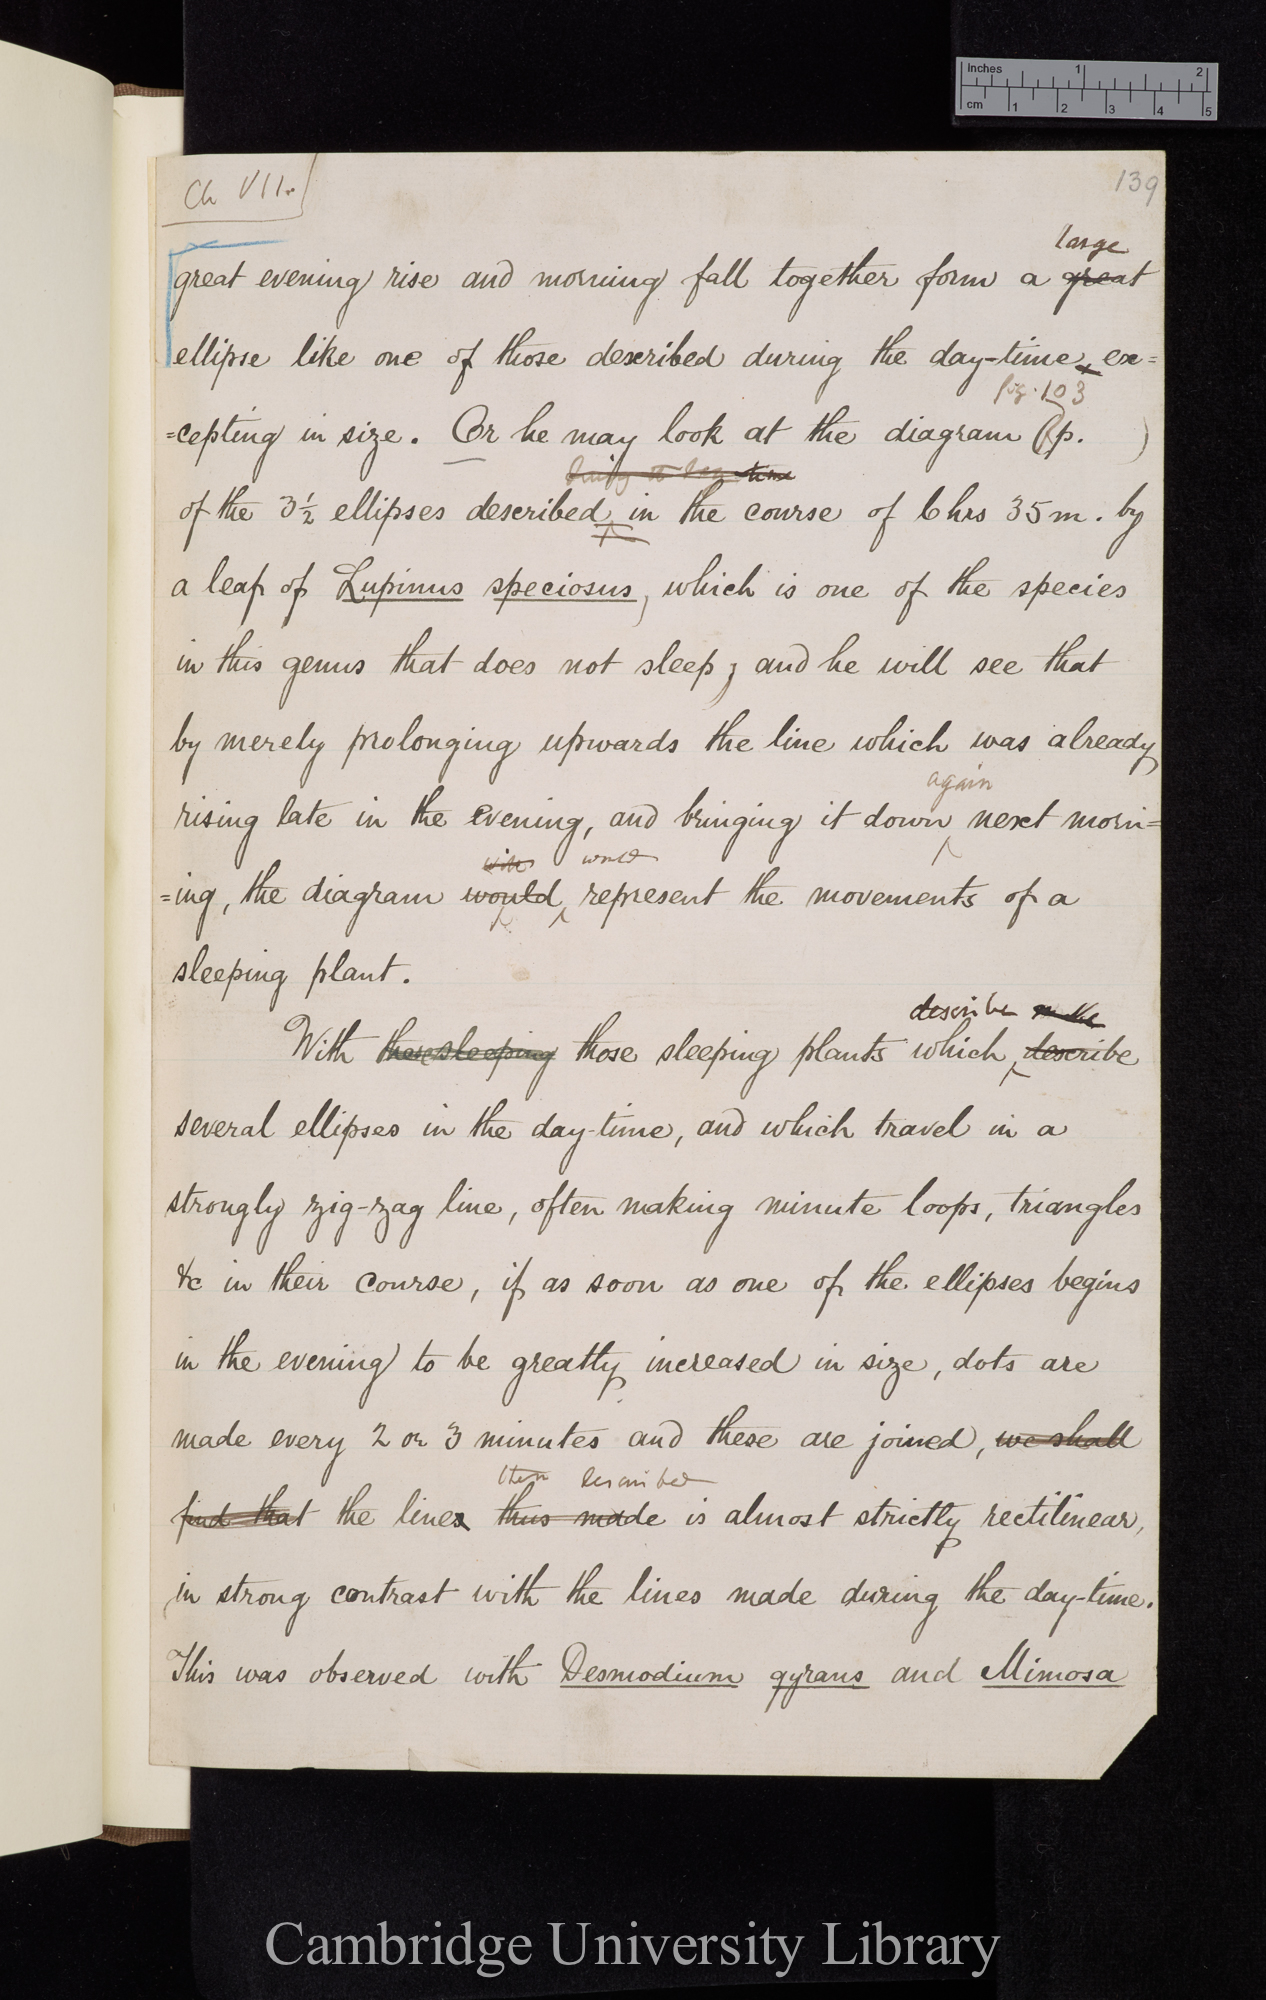 Inches 1 2
cm 1 2 3 4 5
Ch VII.
139
large
great evening rise and morning fall together form a great
ellipse like one of those described during the day-time, ex=
fig. 103
=cepting in size. Or he may look at the diagram (p. )
during the day time
of the 3½ ellipses described in the course of 6 hrs 35 m. by
a leaf of Lupinus speciosus, which is one of the species
in this genus that does not sleep; and he will see that
by merely prolonging upwards the line which was already
again
rising late in the evening, and bringing it down next morn=
will would
=ing, the diagram would represent the movements of a
sleeping plant.
describe make
With these sleeping those sleeping plants which describe
several ellipses in the day-time, and which travel in a
strongly zig-zag line, often making minute loops, triangles
&c in their course, if as soon as one of the ellipses begins
in the evening to be greatly increased in size, dots are
made every 2 or 3 minutes and these are joined, we shall
then described
find that the lines thus made is almost strictly rectilinear,
in strong contrast with the lines made during the day-time.
This was observed with Desmodium gyrans and Mimosa
Cambridge University Library